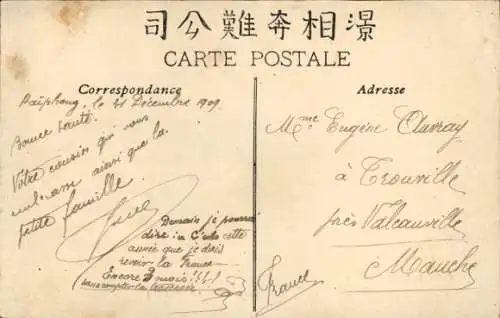 司公難奔相濎
CARTE POSTALE
Correspondance
Adresse
Haïphong, le 31 Décembre 1909.
Bonne santé.
Votre cousin qui vous
embrasse ainsi que la
petite famille.
Demain je pourrai
dire : " C'est cette
année que je dois
revoir la France
Encore 3 mois !!!!
sans compter la traversée
Mme Eugène Auvray
à Trouville
près Valcanville
Manche
France